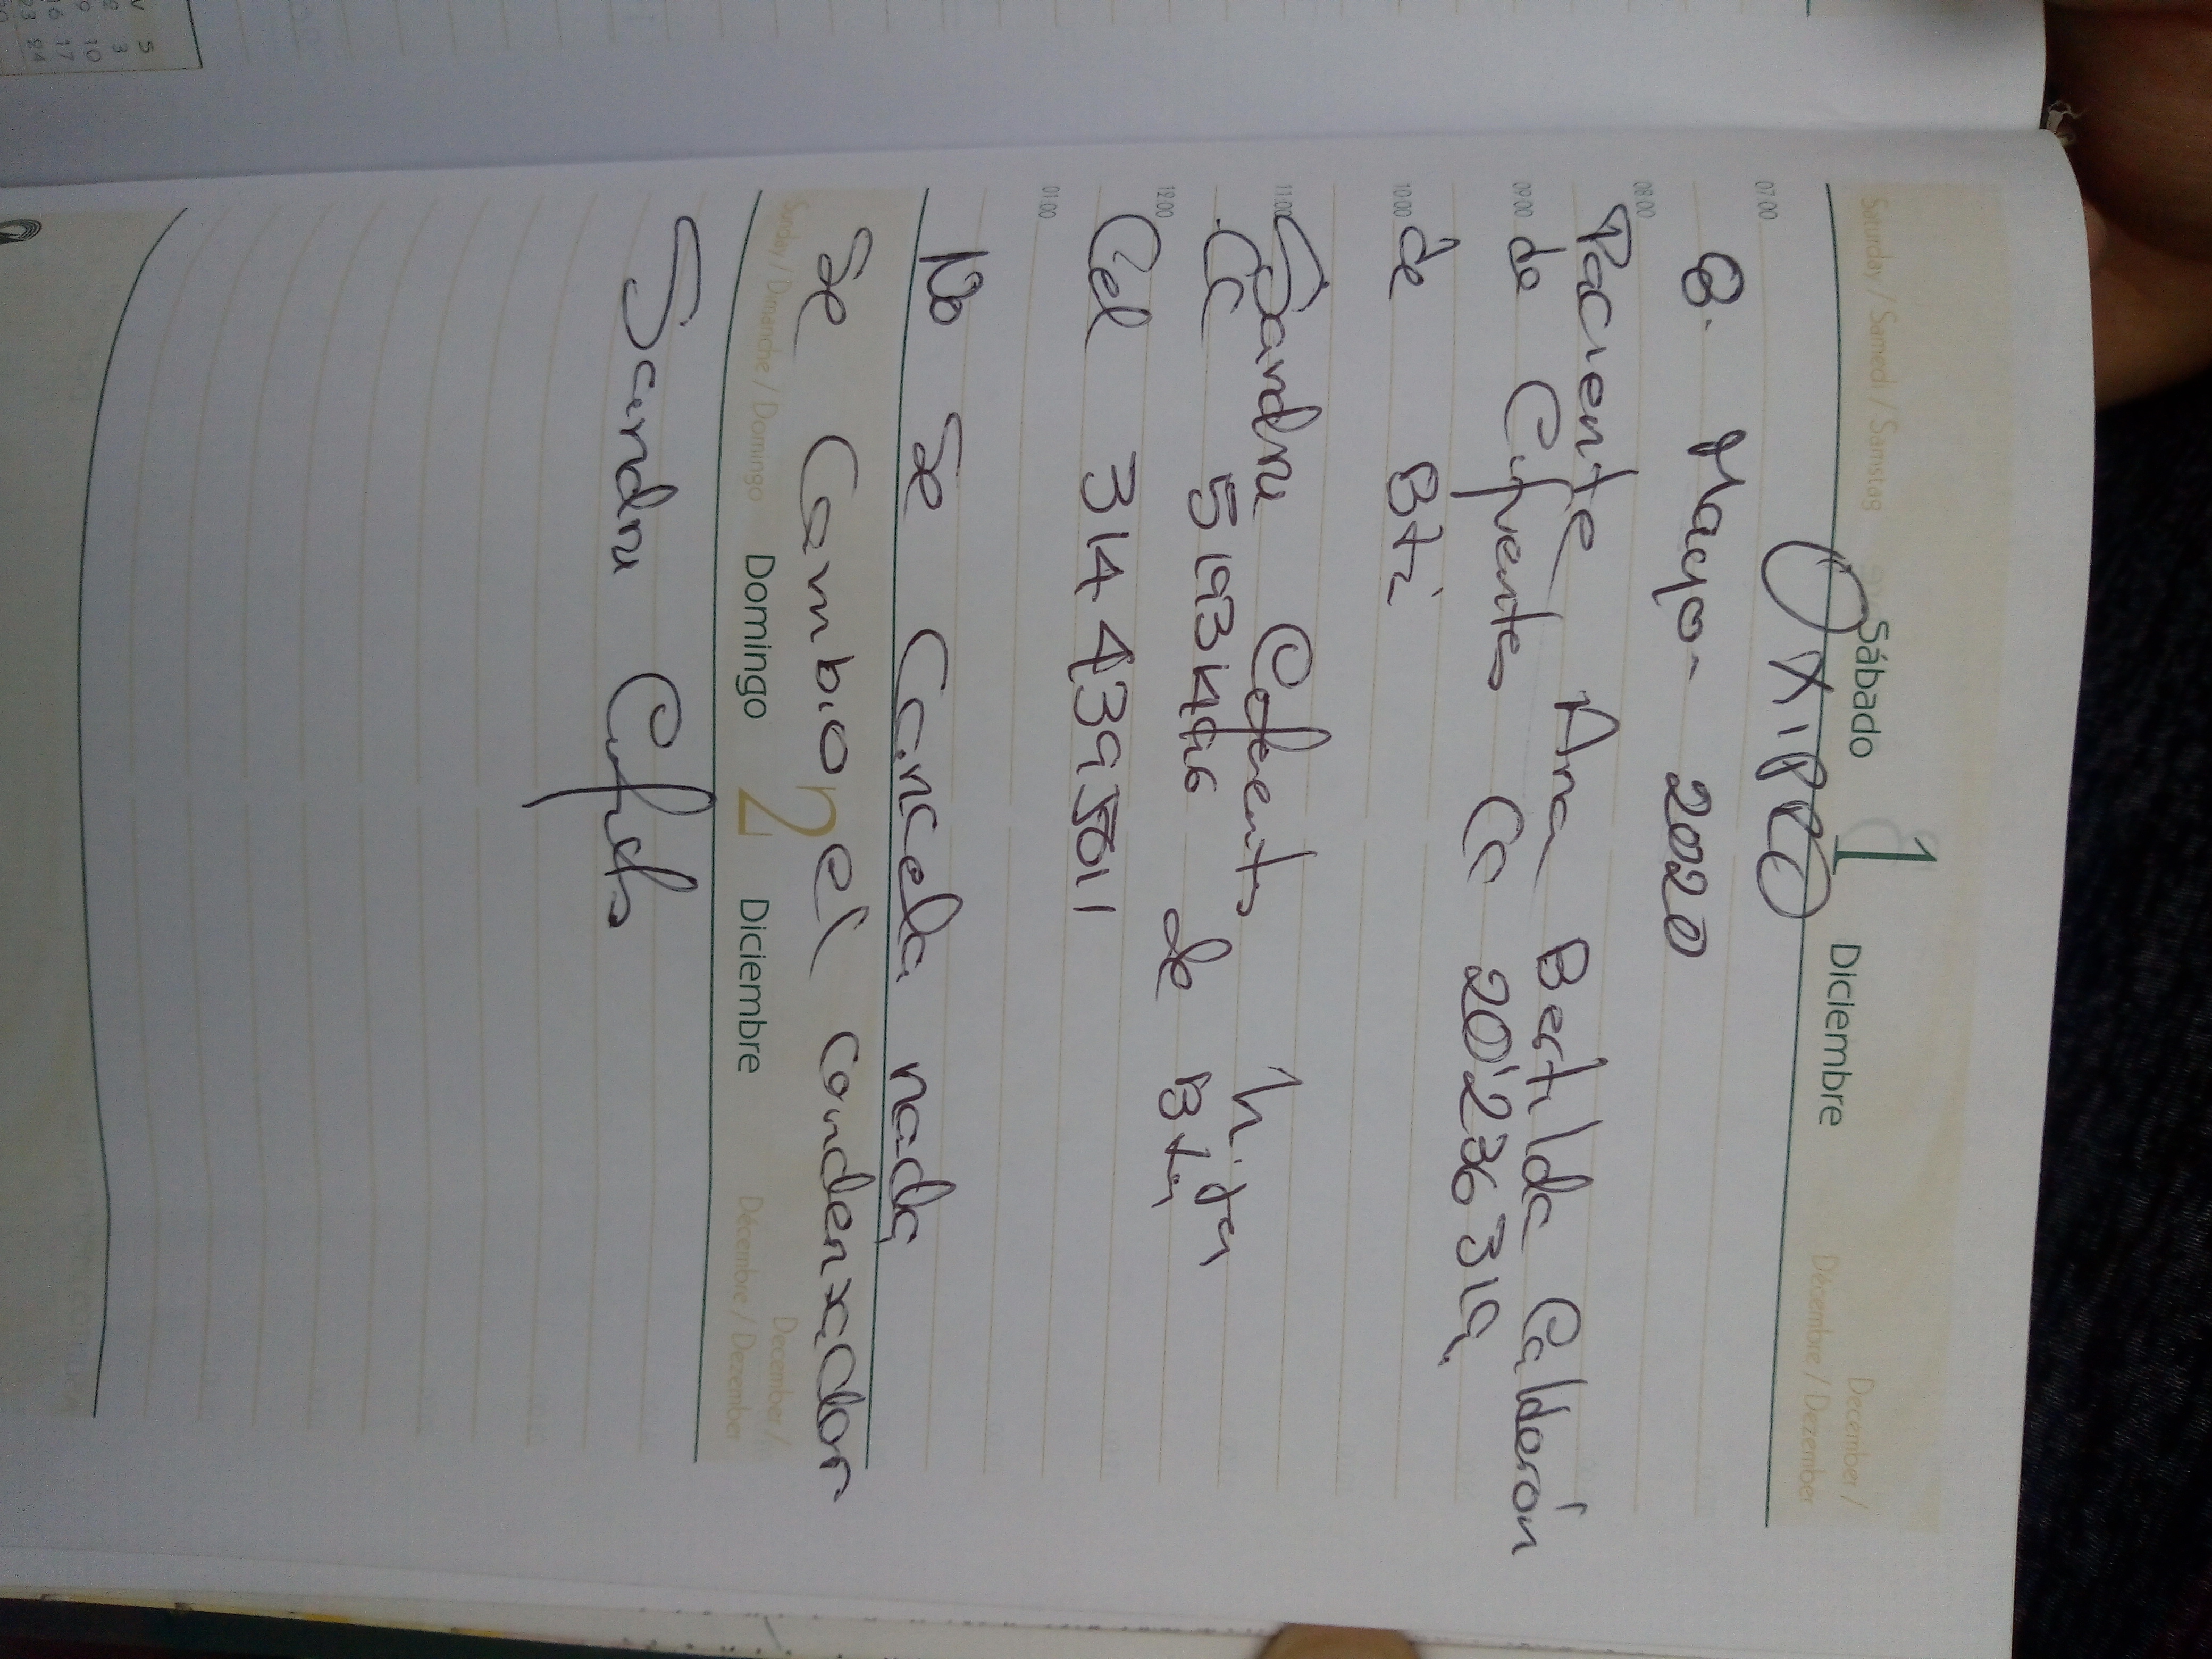 Saturday / Samedi / Samstag
Sábado 1 Diciembre
December /
Décembre / Dezember
07:00
8. Mayo- 2020
08:00
Paciente Ana Bertilda Calderón
09:00
de Cifuentes CC 20'236 319
10:00
de Bta
11:00
Sandra Cifuentes hija
CC 51931496 de Bta
12:00
Cel 314 4395011
01:00
No se Cancela nada
Se Cambio el condenzador
Sunday / Dimanche / Domingo
Domingo 2 Diciembre
December /
Décembre / Dezember
Sandra